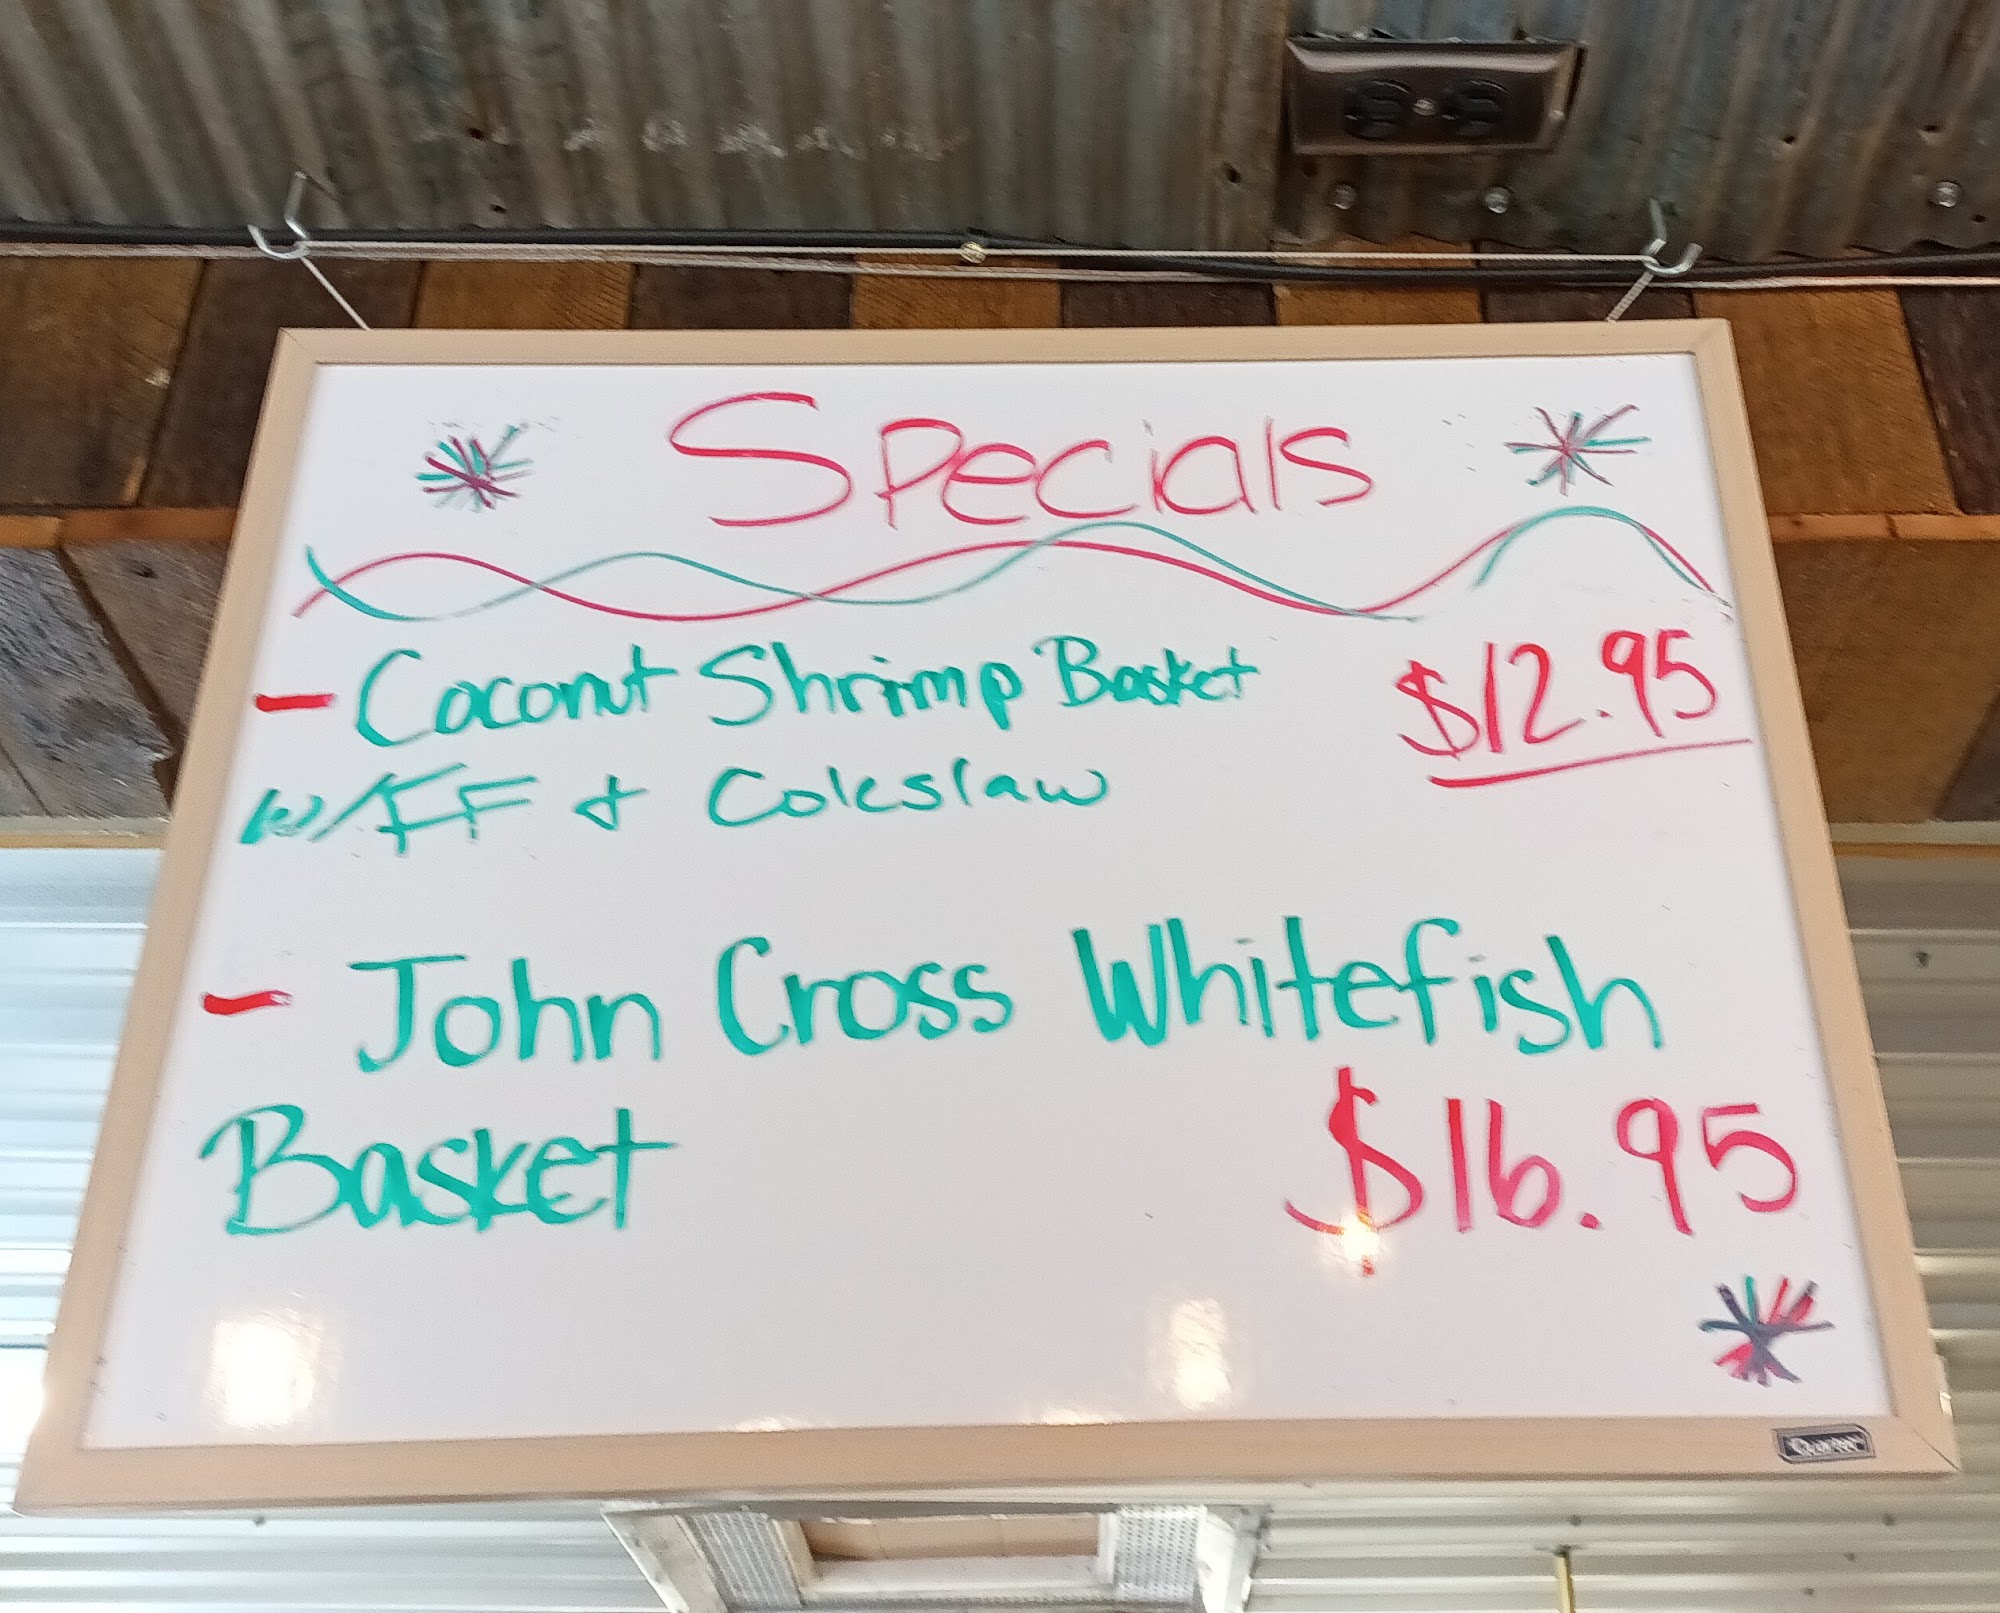 Specials
- Coconut Shrimp Basket $12.95
w/ FF & Coleslaw
- John Cross Whitefish
Basket $16.95